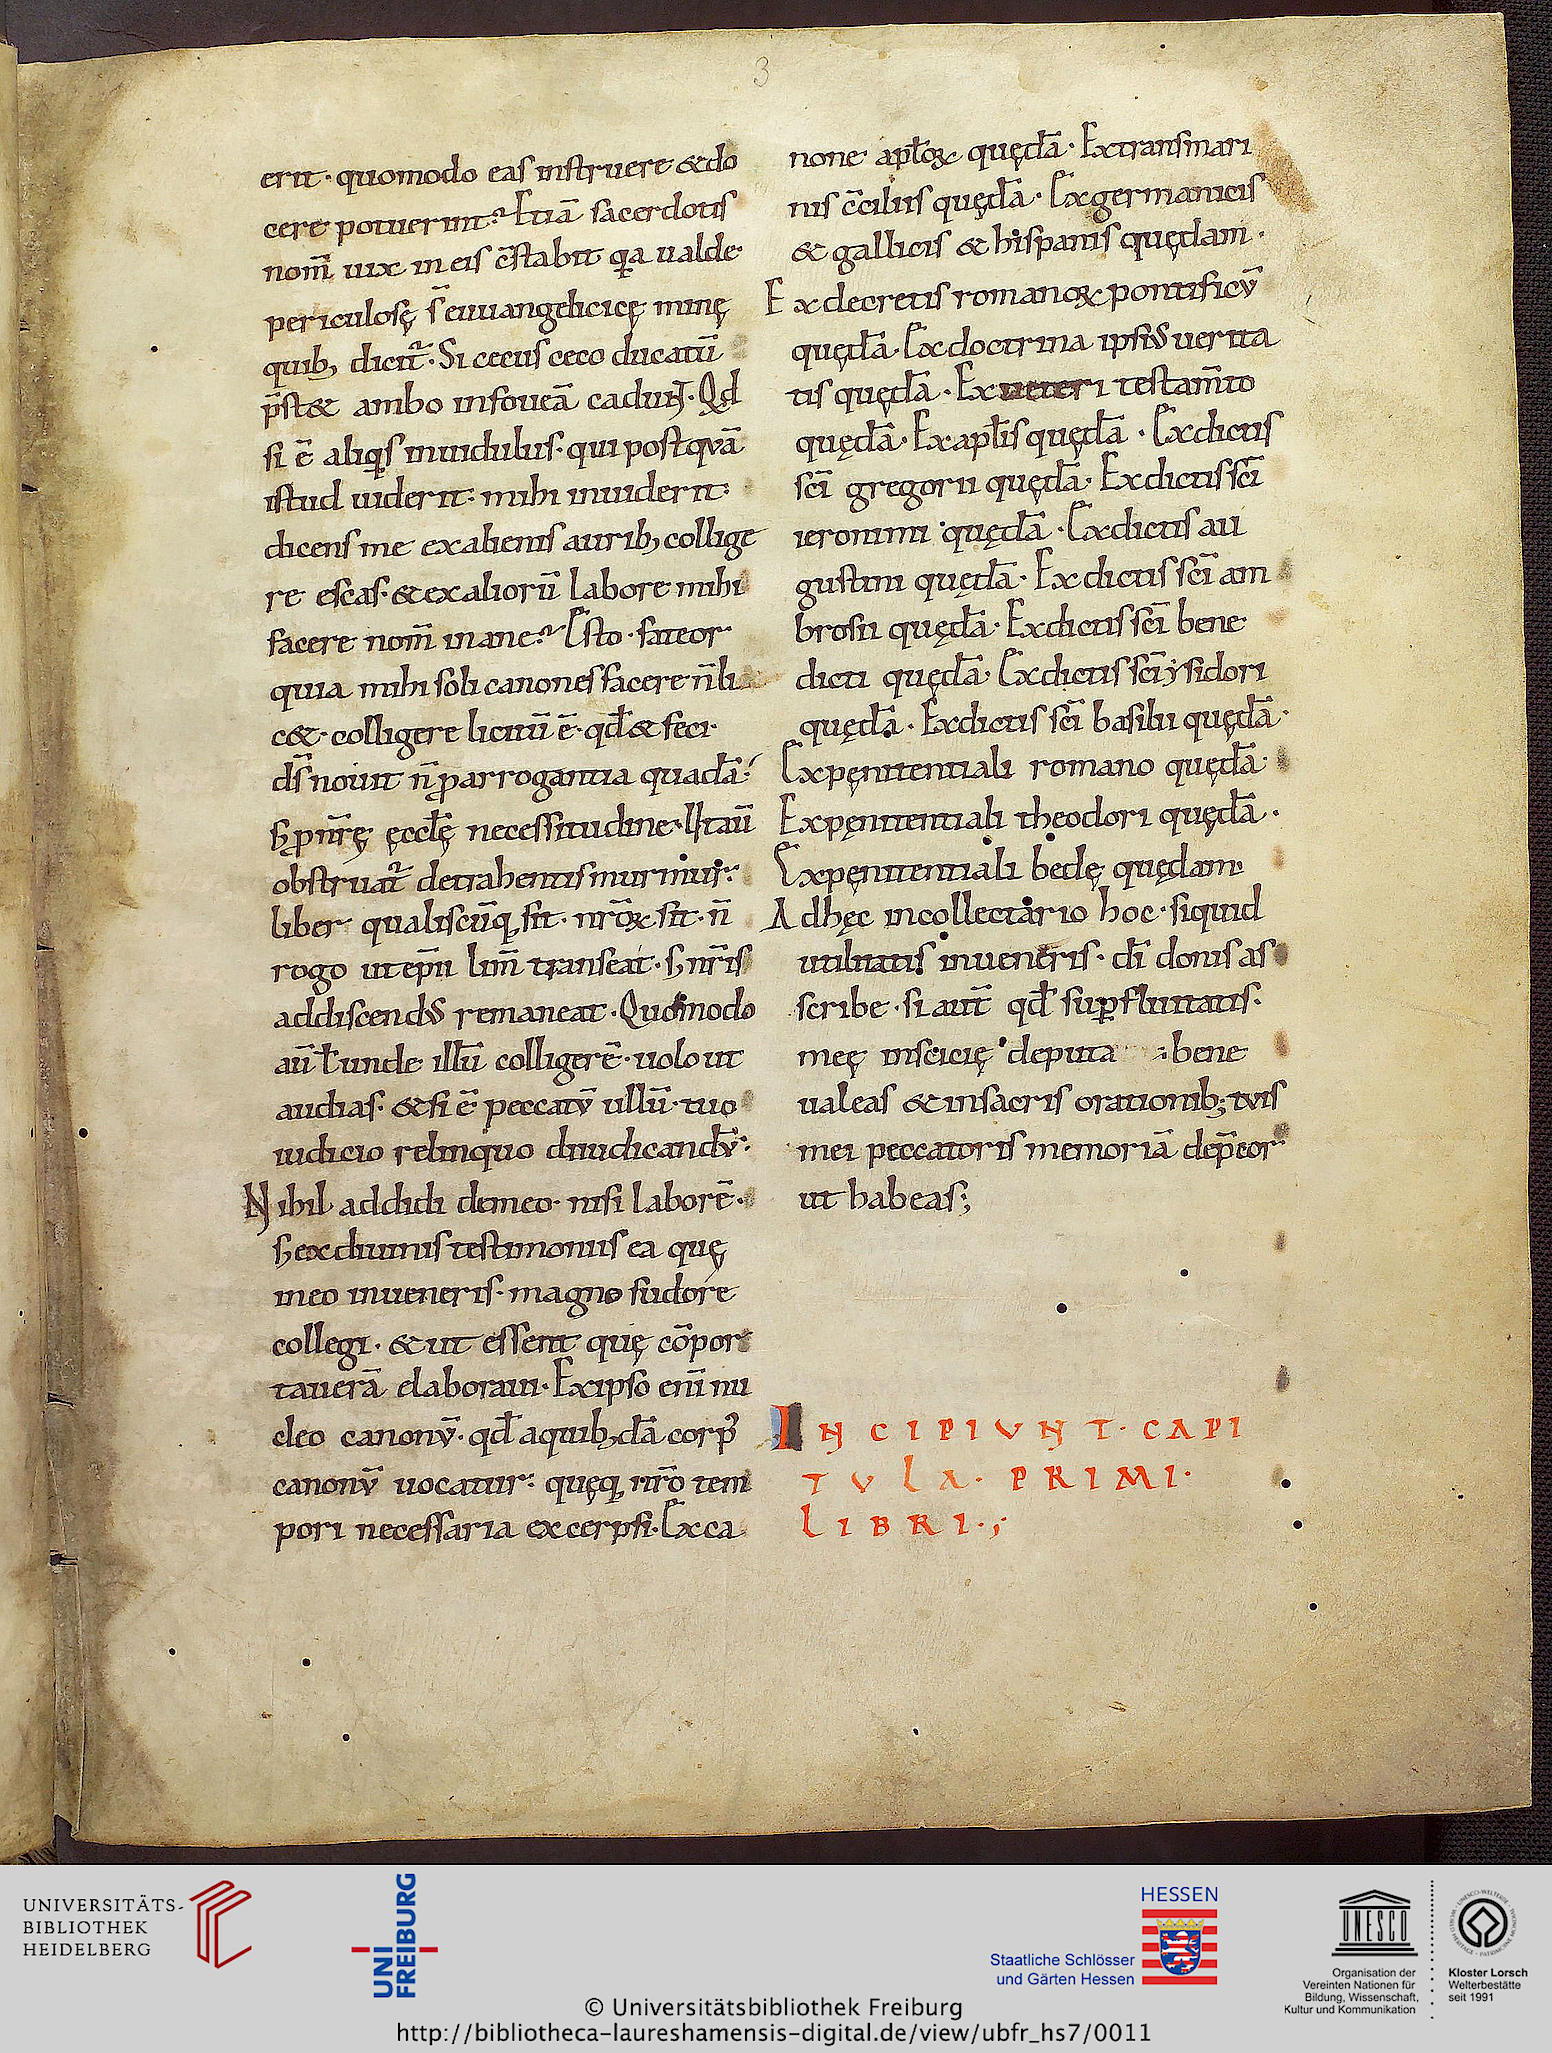 3
erit · quomodo eas instruere &do
cere potuerint? Etiā sacerdotis
nom̄ uix in eis c̄stabit qa ualde
periculosę s̄ euuangelicicę minę
quib; dicit̄ · Si cecus ceco ducatū
p̄st& ambo in foueā cadunt · Qd
si ē aliqs inuidulus · qui postqvā
istud uiderit · mihi inuiderit ·
dicens me ex alienis aurib; collige
re escas · & ex aliorū labore mihi
facere nom̄ inane? Esto · fateor
quia mihi soli canones facere n̄ li
c& · colligere licitū ē · qd̄ & feci ·
ds̄ nouit n̄ p arrogantia quadā ·
s; p nr̄ę ęccl̄ę necessitudine · Ut aū
obstruat̄ detrahentis murmur ·
liber qualiscūq; sit · nr̄oꝝ sit · n̄
rogo ut ep̄ii lim̄ transeat · s; nr̄is
addiscend9 remaneat · Quomodo
aū ƚ unde illū colligerē · uolo ut
audias · & si ē peccatv̄ ullū · tuo
iudicio relinquo diiudicandv̄ ·
Nihil addidi de meo · nisi laborē ·
s; ex diuinis testimoniis ea quę
in eo inueneris · magno sudore
collegi · & ut essent quę cōpor
taverā elaboraui · Ex ipso enī nu
cleo canonv̄ · qd̄ a quib;dā corp9
canonv̄ uocatur · quęq; nr̄o tem
pori necessaria excerpsi · Ex ca
none apl̄oꝝ quędā · Ex transmari
nis c̄ciliis quędā · Ex germanicis
& gallicis & hispanis quędam ·
Ex decretis romanoꝝ pontificv̄
quędā · Ex doctrina ipsi9 uerita
tis quędā · Ex ueteri testam̄to
quędā · Ex apl̄is quędā · Ex dictis
sc̄i gregorii quędā · Ex dictis sc̄i
ieronimi quędā · Ex dictis au
gustini quędā · Ex dictis sc̄i am
brosii quędā · Ex dictis sc̄i bene
dicti quędā · Ex dictis sc̄i ysidori
quędā · Ex dictis sc̄i basilii quędā ·
Ex pęnitentiali romano quędā ·
Ex pęnitentiali theodori quędā ·
Ex pęnitentiali bedę quędam
Ad hęc in collectario hoc · siquid
utilitatis inueneris · dī donis as
scribe · si aut̄ qd̄ supfluitatis ·
meę inscicię deputa bene
ualeas & in sacris orationib; tvis
mei peccatoris memoriā dep̄cor
ut habeas;
INCIPIUNT · CAPI
TULA · PRIMI ·
LIBRI · ;
UNIVERSITÄTS-
BIBLIOTHEK
HEIDELBERG
UNI
FREIBURG
HESSEN
Staatliche Schlösser
und Gärten Hessen
UNESCO
Organisation der
Vereinten Nationen für
Bildung, Wissenschaft,
Kultur und Kommunikation
Kloster Lorsch
Welterbestätte
seit 1991
© Universitätsbibliothek Freiburg
http://bibliotheca-laureshamensis-digital.de/view/ubfr_hs7/0011